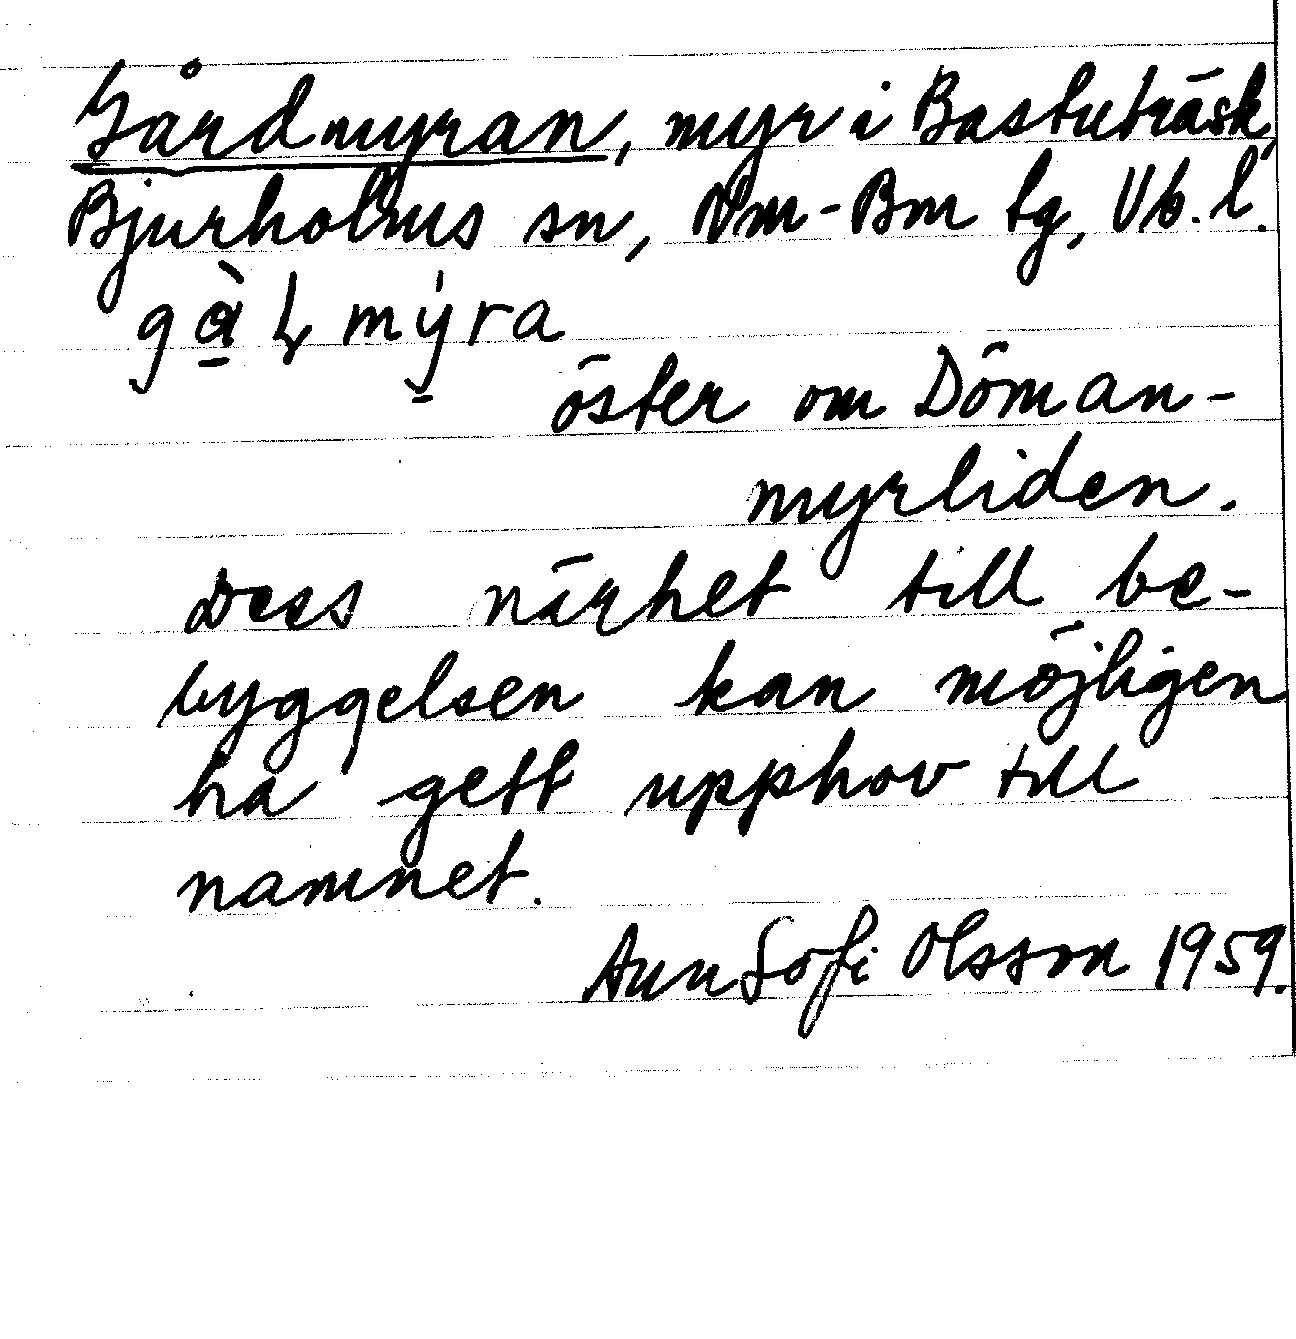 Gårdmyran, myr i Bastuträsk,
Bjurholms sn, Nm-Bm tg, Vb. l.
öster om Döman-
myrliden.
Dess närhet till be-
byggelsen kan möjligen
ha gett upphov till
namnet.
Ann Sofi Olsson 1959.